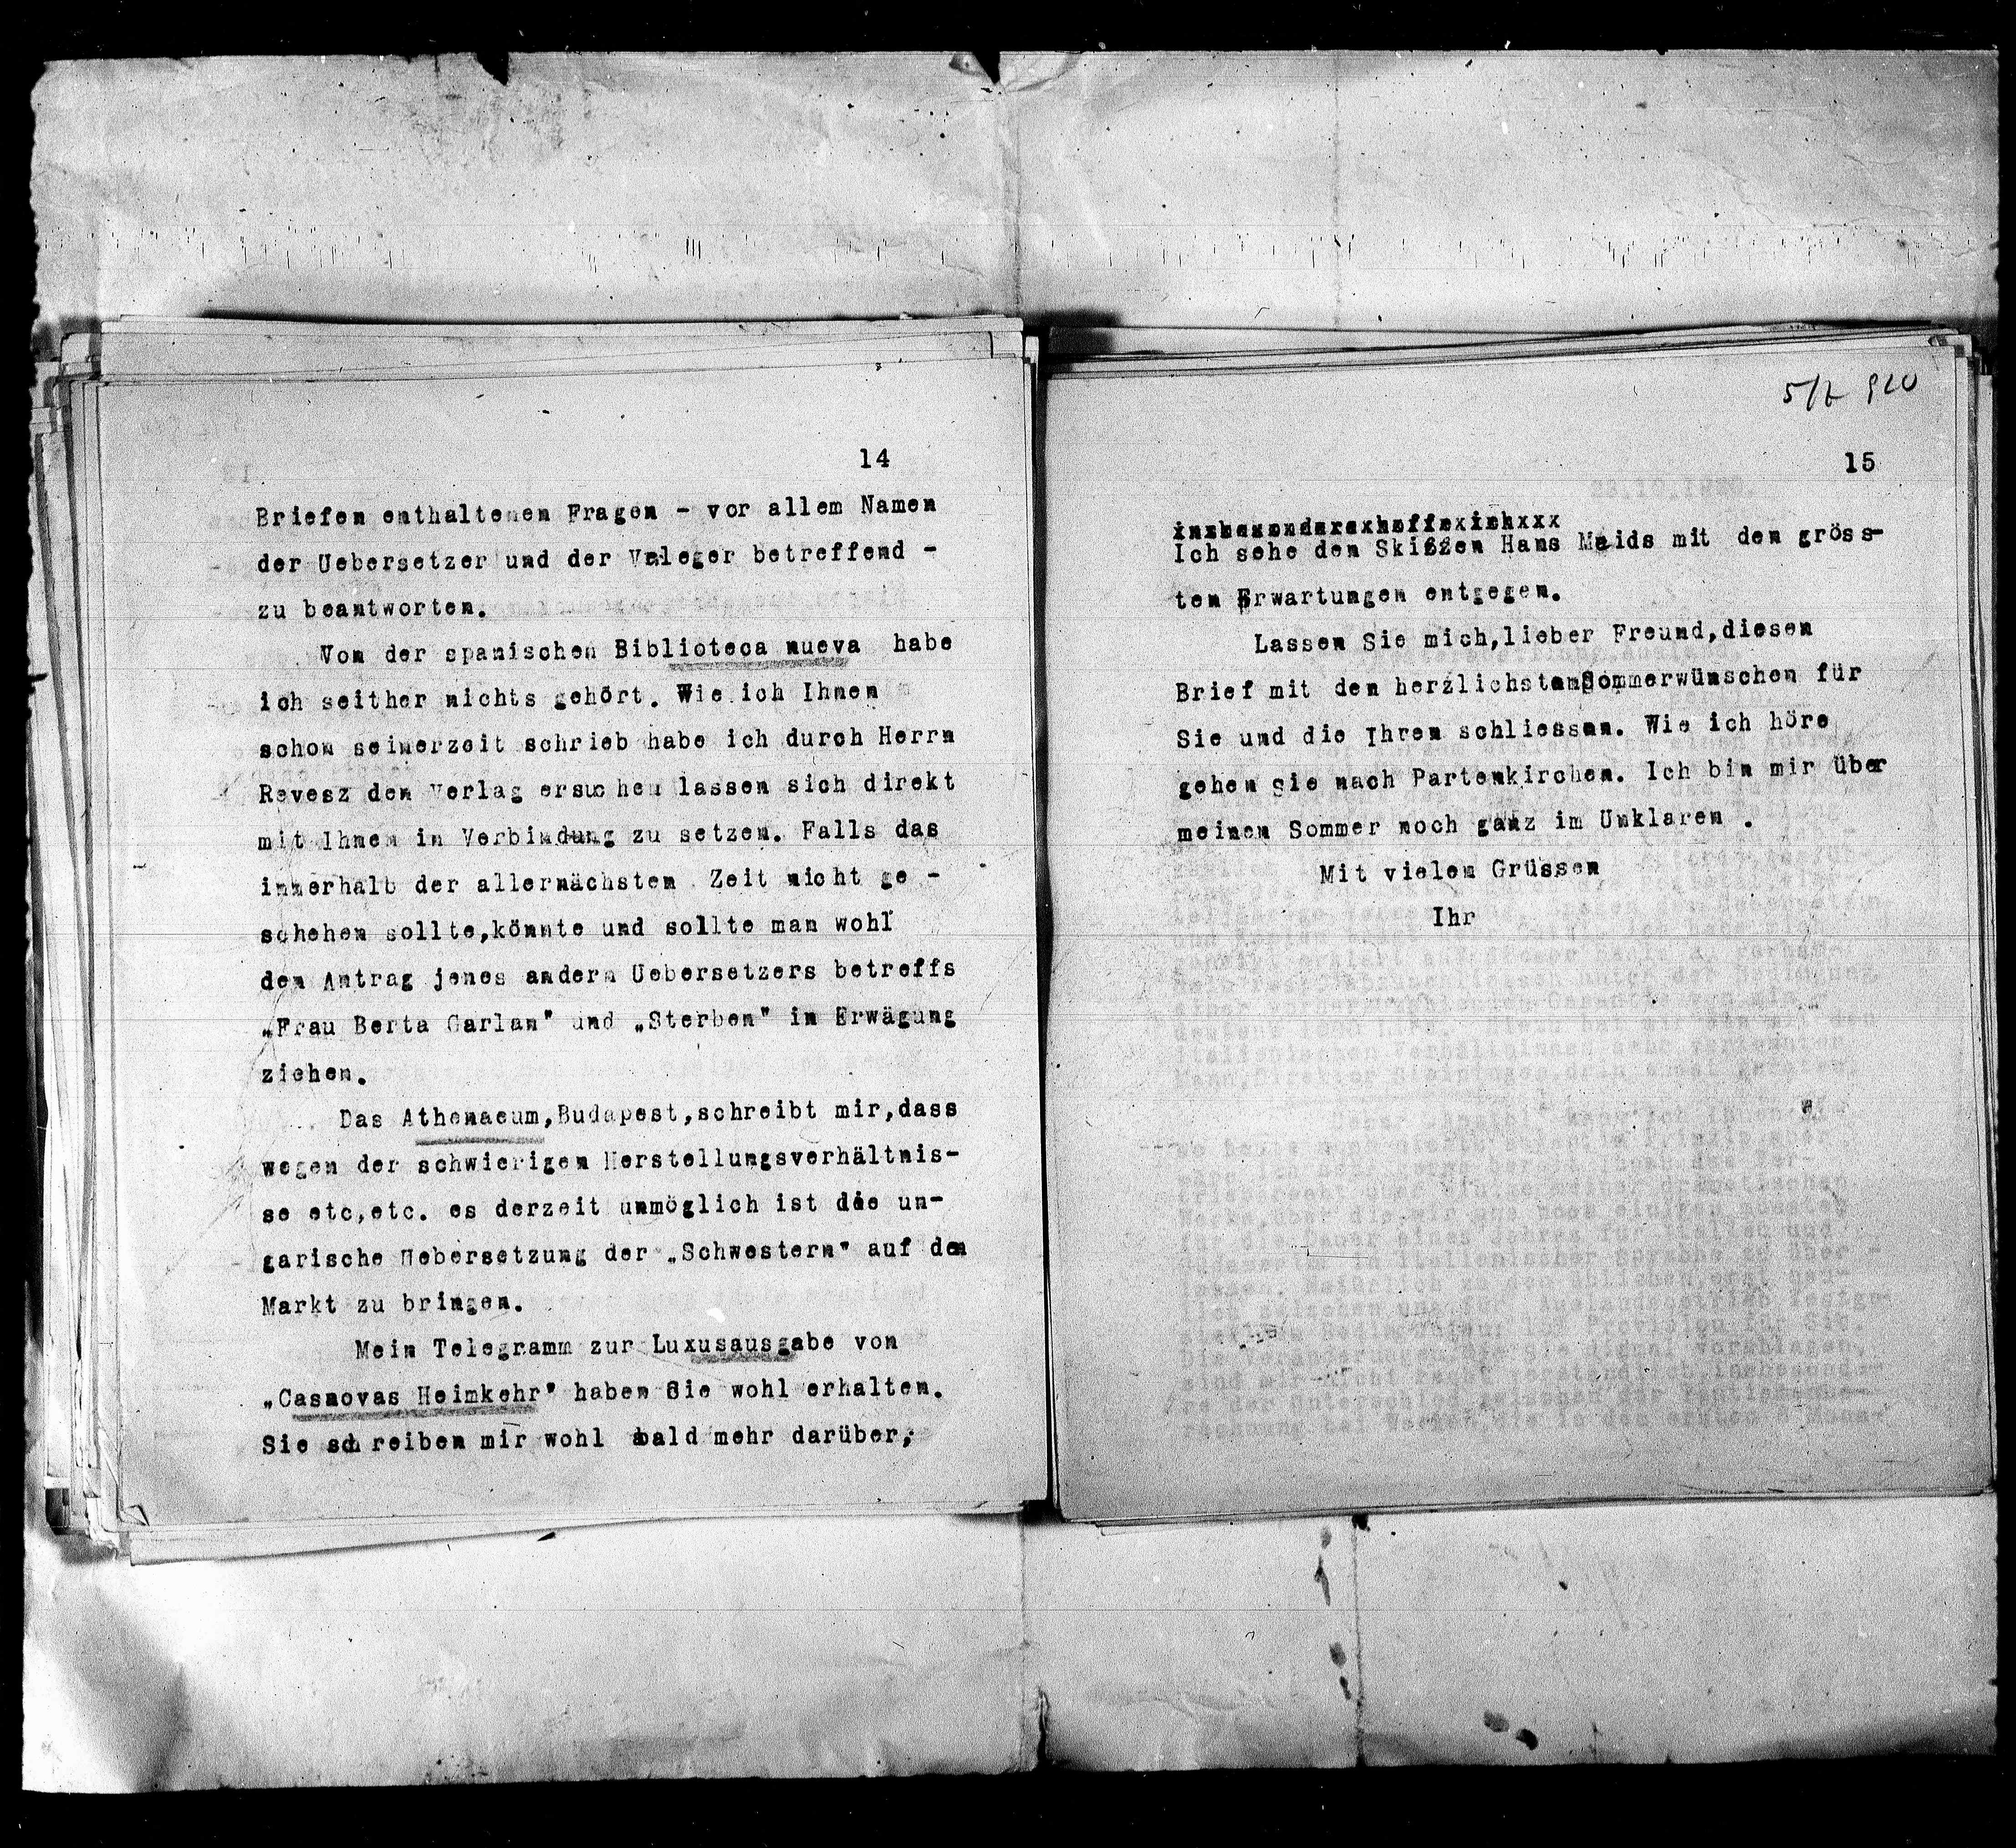 14
Briefen enthaltenen Fragen - vor allem Namen
der Uebersetzer und der Valeger betreffend -
zu beantworten.
Von der spanischen Biblioteca nueva habe
ich seither nichts gehört. Wie ich Ihnen
schon seinerzeit schrieb habe ich durch Herrn
Revesz den Verlag ersuchen lassen sich direkt
mit Ihnen in Verbindung zu setzen. Falls das
innerhalb der allernächsten Zeit nicht ge -
schehen sollte,könnte und sollte man wohl
den Antrag jenes andern Uebersetzers betreffs
„Frau Berta Garlan" und „Sterben" in Erwägung
ziehen.
Das Athenaeum,Budapest,schreibt mir,dass
wegen der schwierigen Herstellungsverhältnis-
se etc,etc. es derzeit unmöglich ist die un-
garische Uebersetzung der „Schwestern" auf den
Markt zu bringen.
Mein Telegramm zur Luxusausgabe von
„Casnovas Heimkehr" haben Sie wohl erhalten.
Sie schreiben mir wohl bald mehr darüber,
5/7 920
15
Ich sehe den Skizzen Hans Meids mit den gröss-
ten Erwartungen entgegen.
Lassen Sie mich,lieber Freund,diesen
Brief mit den herzlichsten Sommerwünschen für
Sie und die Ihren schliessen. Wie ich höre
gehen Sie nach Partenkirchen. Ich bin mir über
meinen Sommer noch ganz im Unklaren .
Mit vielen Grüssen
Ihr